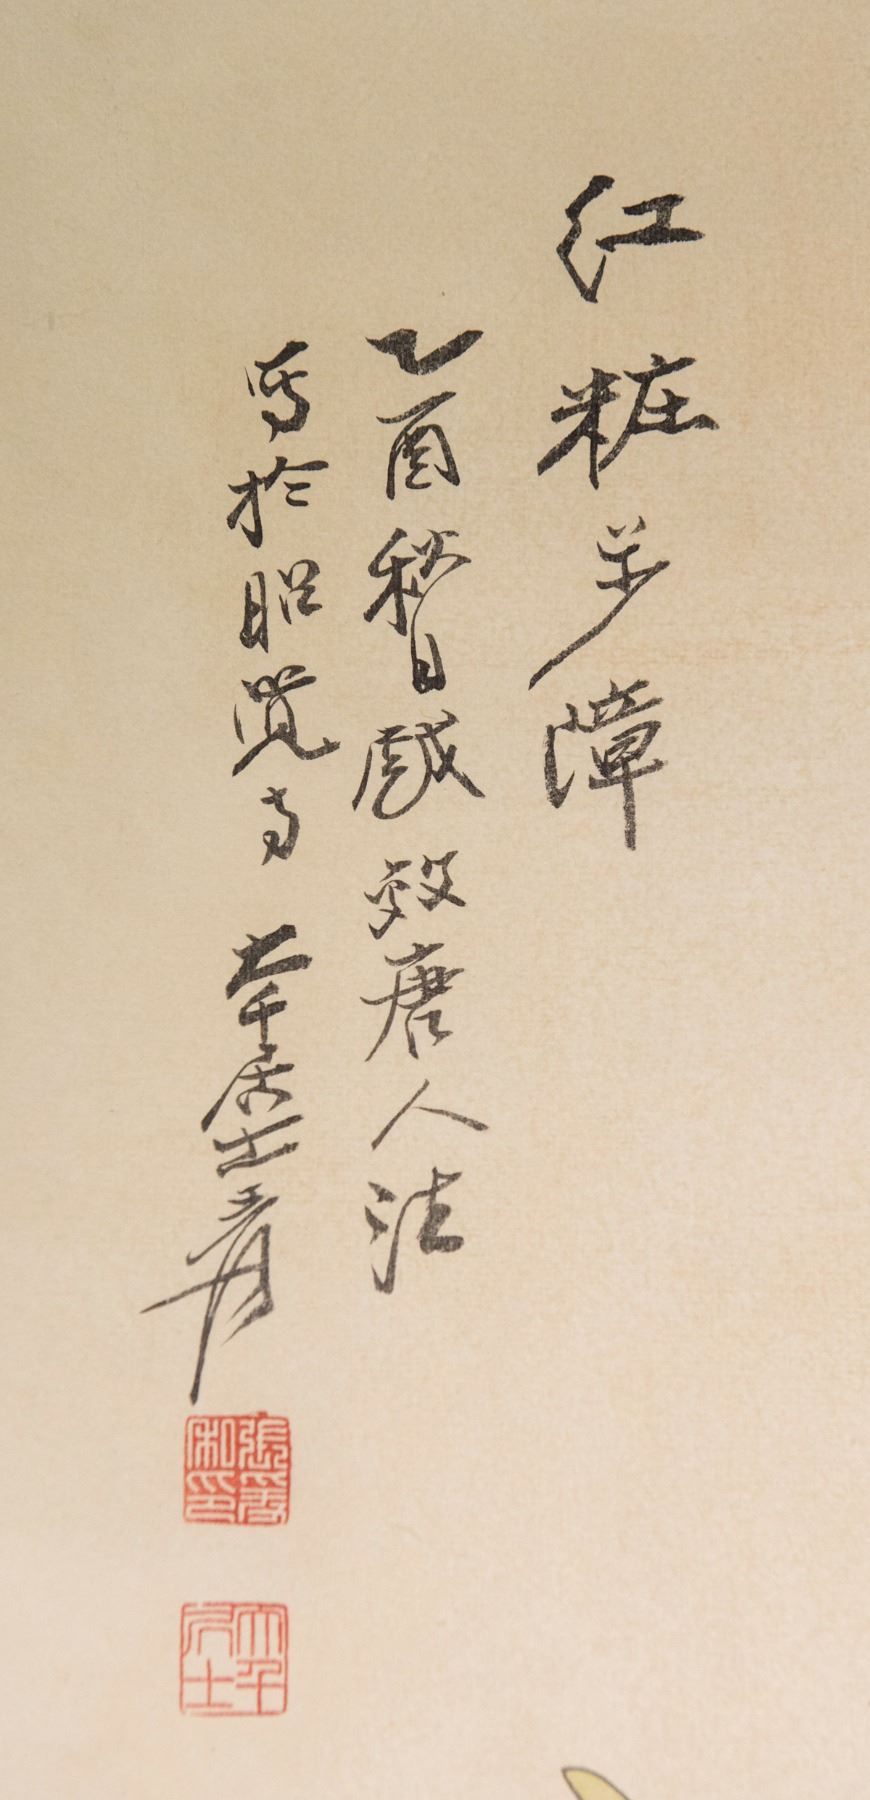 红粧步障
乙酉秋日戲效唐人法
写於昭覺寺 大千居士爰
張爰私印
大千居士